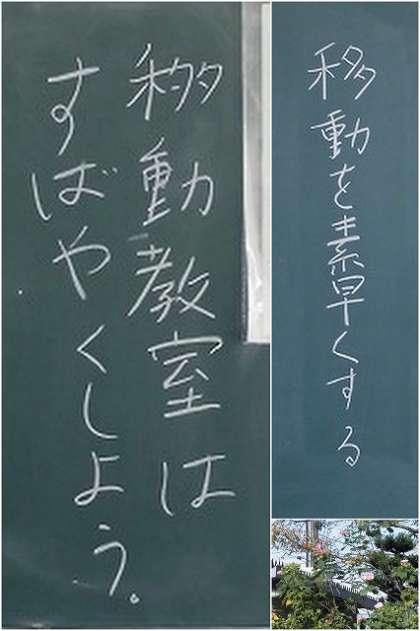 移動教室は
すばやくしよう。
移動を素早くする